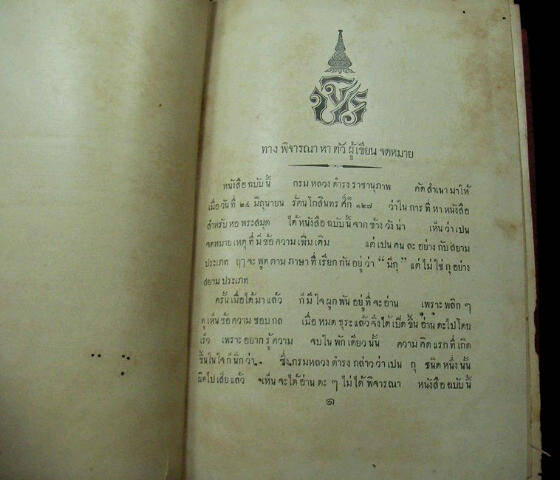 ทาง พิจารณา หา ตัว ผู้เขียน จดหมาย
หนังสือ ฉบับ นี้ กรม หลวง ดำรง ราชานุภาพ คัด สำเนา มาให้
เมื่อ วัน ที่ ๒๔ มิถุนายน รัตน โกสินทร ศก ๑๒๗ ว่า ใน การ ที่ หา หนังสือ
สำหรับ หอ พระสมุด ได้ หนังสือ ฉบับ นี้ จาก ข้าง วัง น่า เห็น ว่า เปน
จดหมาย เหตุ ที่ มี ข้อ ความ เพิ่ม เติม แต่ เปน คน ละ อย่าง กับ สยาม
ประเภท ฤๅ จะ พูด ตาม ภาษา ที่ เรียก กัน อยู่ ว่า “ มีกุ ” แต่ ไม่ ใช่ กุ อย่าง
สยาม ประเภท
ครั้น เมื่อ ได้ มา แล้ว ก็ มี ใจ ผูก พัน อยู่ ที่ จะ อ่าน เพราะ พลิก ๆ
ดู เห็น ข้อ ความ ชอบ กล เมื่อ หมด ธุระ แล้ว จึง ได้ เปิด ขึ้น อ่าน ตะ ไป โดย
เร็ว เพราะ อยาก รู้ ความ จบ ใน พัก เดียว นั้น ความ คิด แรก ที่ เกิด
ขึ้น ใน ใจ ก็ นึก ว่า ซึ่ง กรม หลวง ดำรง กล่าว ว่า เปน กุ ชนิด หนึ่ง นั้น
ผิด ไป เสีย แล้ว จะ เห็น จะ ได้ อ่าน ตะ ๆ ไม่ ได้ พิจารณา หนังสือ ฉบับ นี้
๑